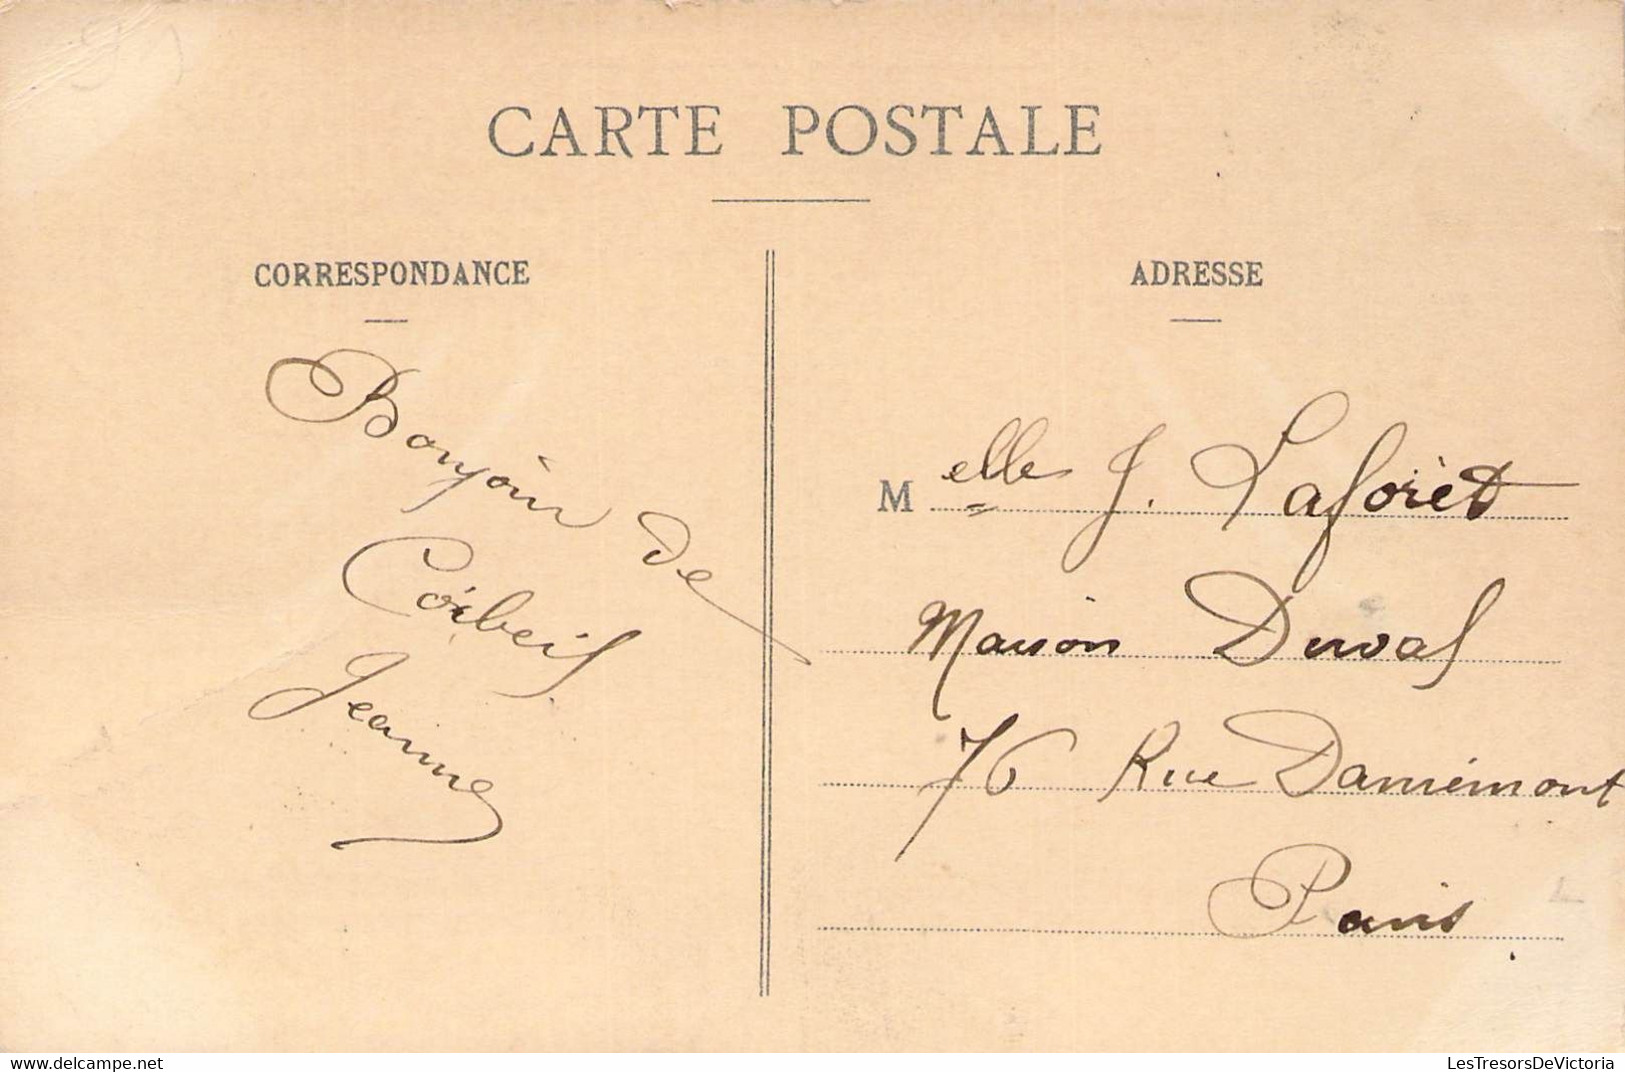 CARTE POSTALE
CORRESPONDANCE
Bonjour de
Corbeil
Jeanne
ADRESSE
Melle J. Laforêt
Maison Duval
76 Rue Damrémont
Paris
LesTresorsDeVictoria
delcampe.net